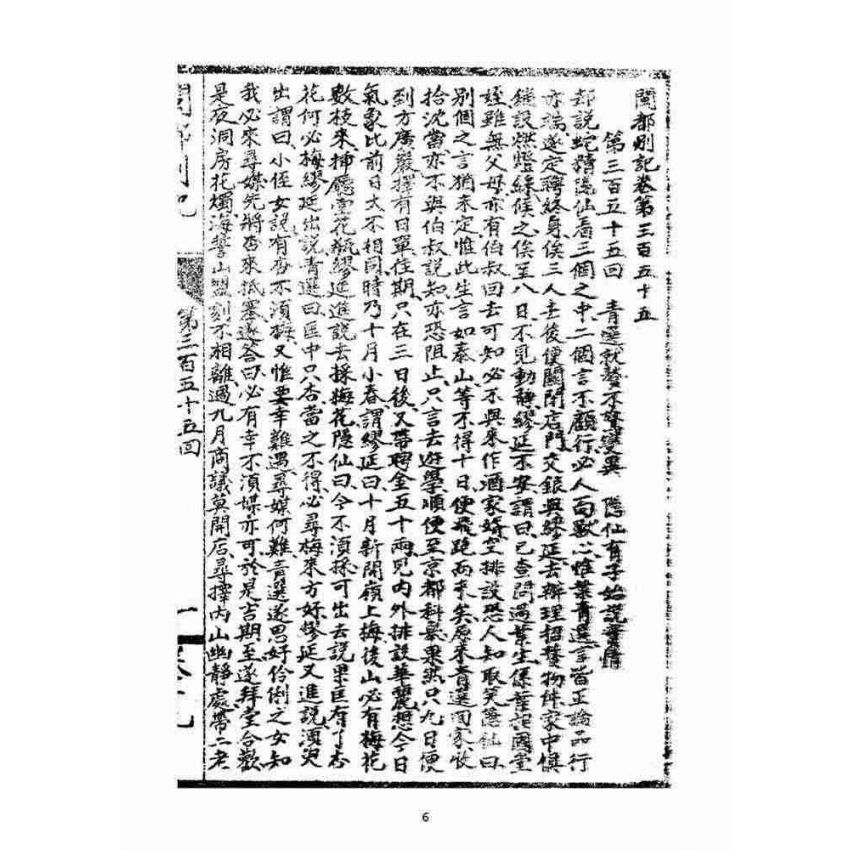 閩都別記卷第三百五十五
第三百五十五回 青選就贅不驚變異 隱仙有孕始說實情
却說蛇精隱仙看三個之中二個言不顧行必人面獸心惟葉青選言皆正論品行
亦端遂定聘終身俟三人去後便關閉店門交銀與繆延去辦理招贅物件家中俱
鋪設烘燈綵候之俟至八日不見動靜繆延不安謂曰已查問過葉生係葉祖國堂
姪雖無父母亦有伯叔回去可知必不與來作酒家婿空排設恐人知取笑隱仙曰
別個之言猶未定惟此生言如泰山等不得十日便飛跑而來矣原來青選回家收
拾沈當亦不與伯叔說知亦恐阻止只言去遊學順便至京都科舉果然只九日便
到方廣巖擇有日單佳期只在三日後又帶聘金五十兩見內外排設華麗想今日
氣象比前日大不相同時乃十月小春謂繆延曰十月新開嶺上梅後山必有梅花
數枝來挿廳堂花瓶繆延進說去採梅花隱仙曰今不須採可出去說果匡有丁杏
花何必梅繆延出說青選曰匡中只杏當之不得必尋梅來方好繆延又進說須臾
出謂曰小侄女說有杏不須梅又惟要幸難遇尋媒何難青選遂思好伶俐之女知
我必來尋媒先將杏來抵塞遂答曰必有幸不須媒亦可於是吉期至遂拜堂合歡
是夜洞房花燭海誓山盟刻不相離過九月商議莫開店尋擇內山幽靜處帶二老
閩都別記
第三百五十五回
一
6